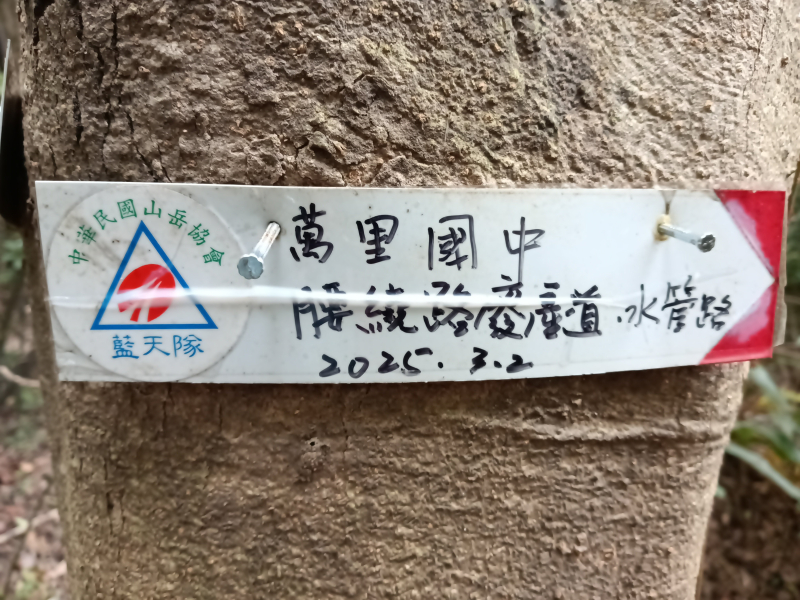 中華民國山岳協會
藍天隊
萬里國中
腰繞路廢産道.水管路
2025.3.2